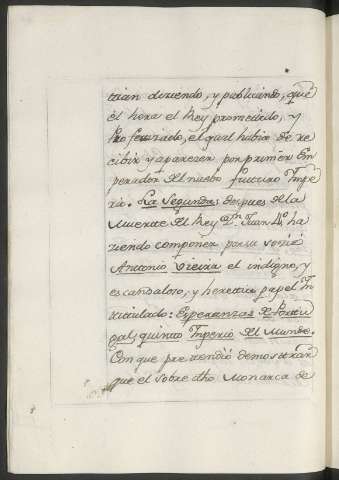 trian diziendo, y publicando, que
él hora el Rey prometido, y
Profetizado, el qual había de re
cibir y aparecer por primer Em
perador del nuebo futuro Impe
rio. La Segunda despues de la
Muerte del Rey Dn. Juan 4º ha
ziendo componer por su socio
Antonio Vieira el indigno, y
escandaloso, y heretico papel In
titulado: Esperanzas de Portu
gal, quinto Imperio del Mundo.
Con que pretendió demostrar
que el sobre dho Monarca de